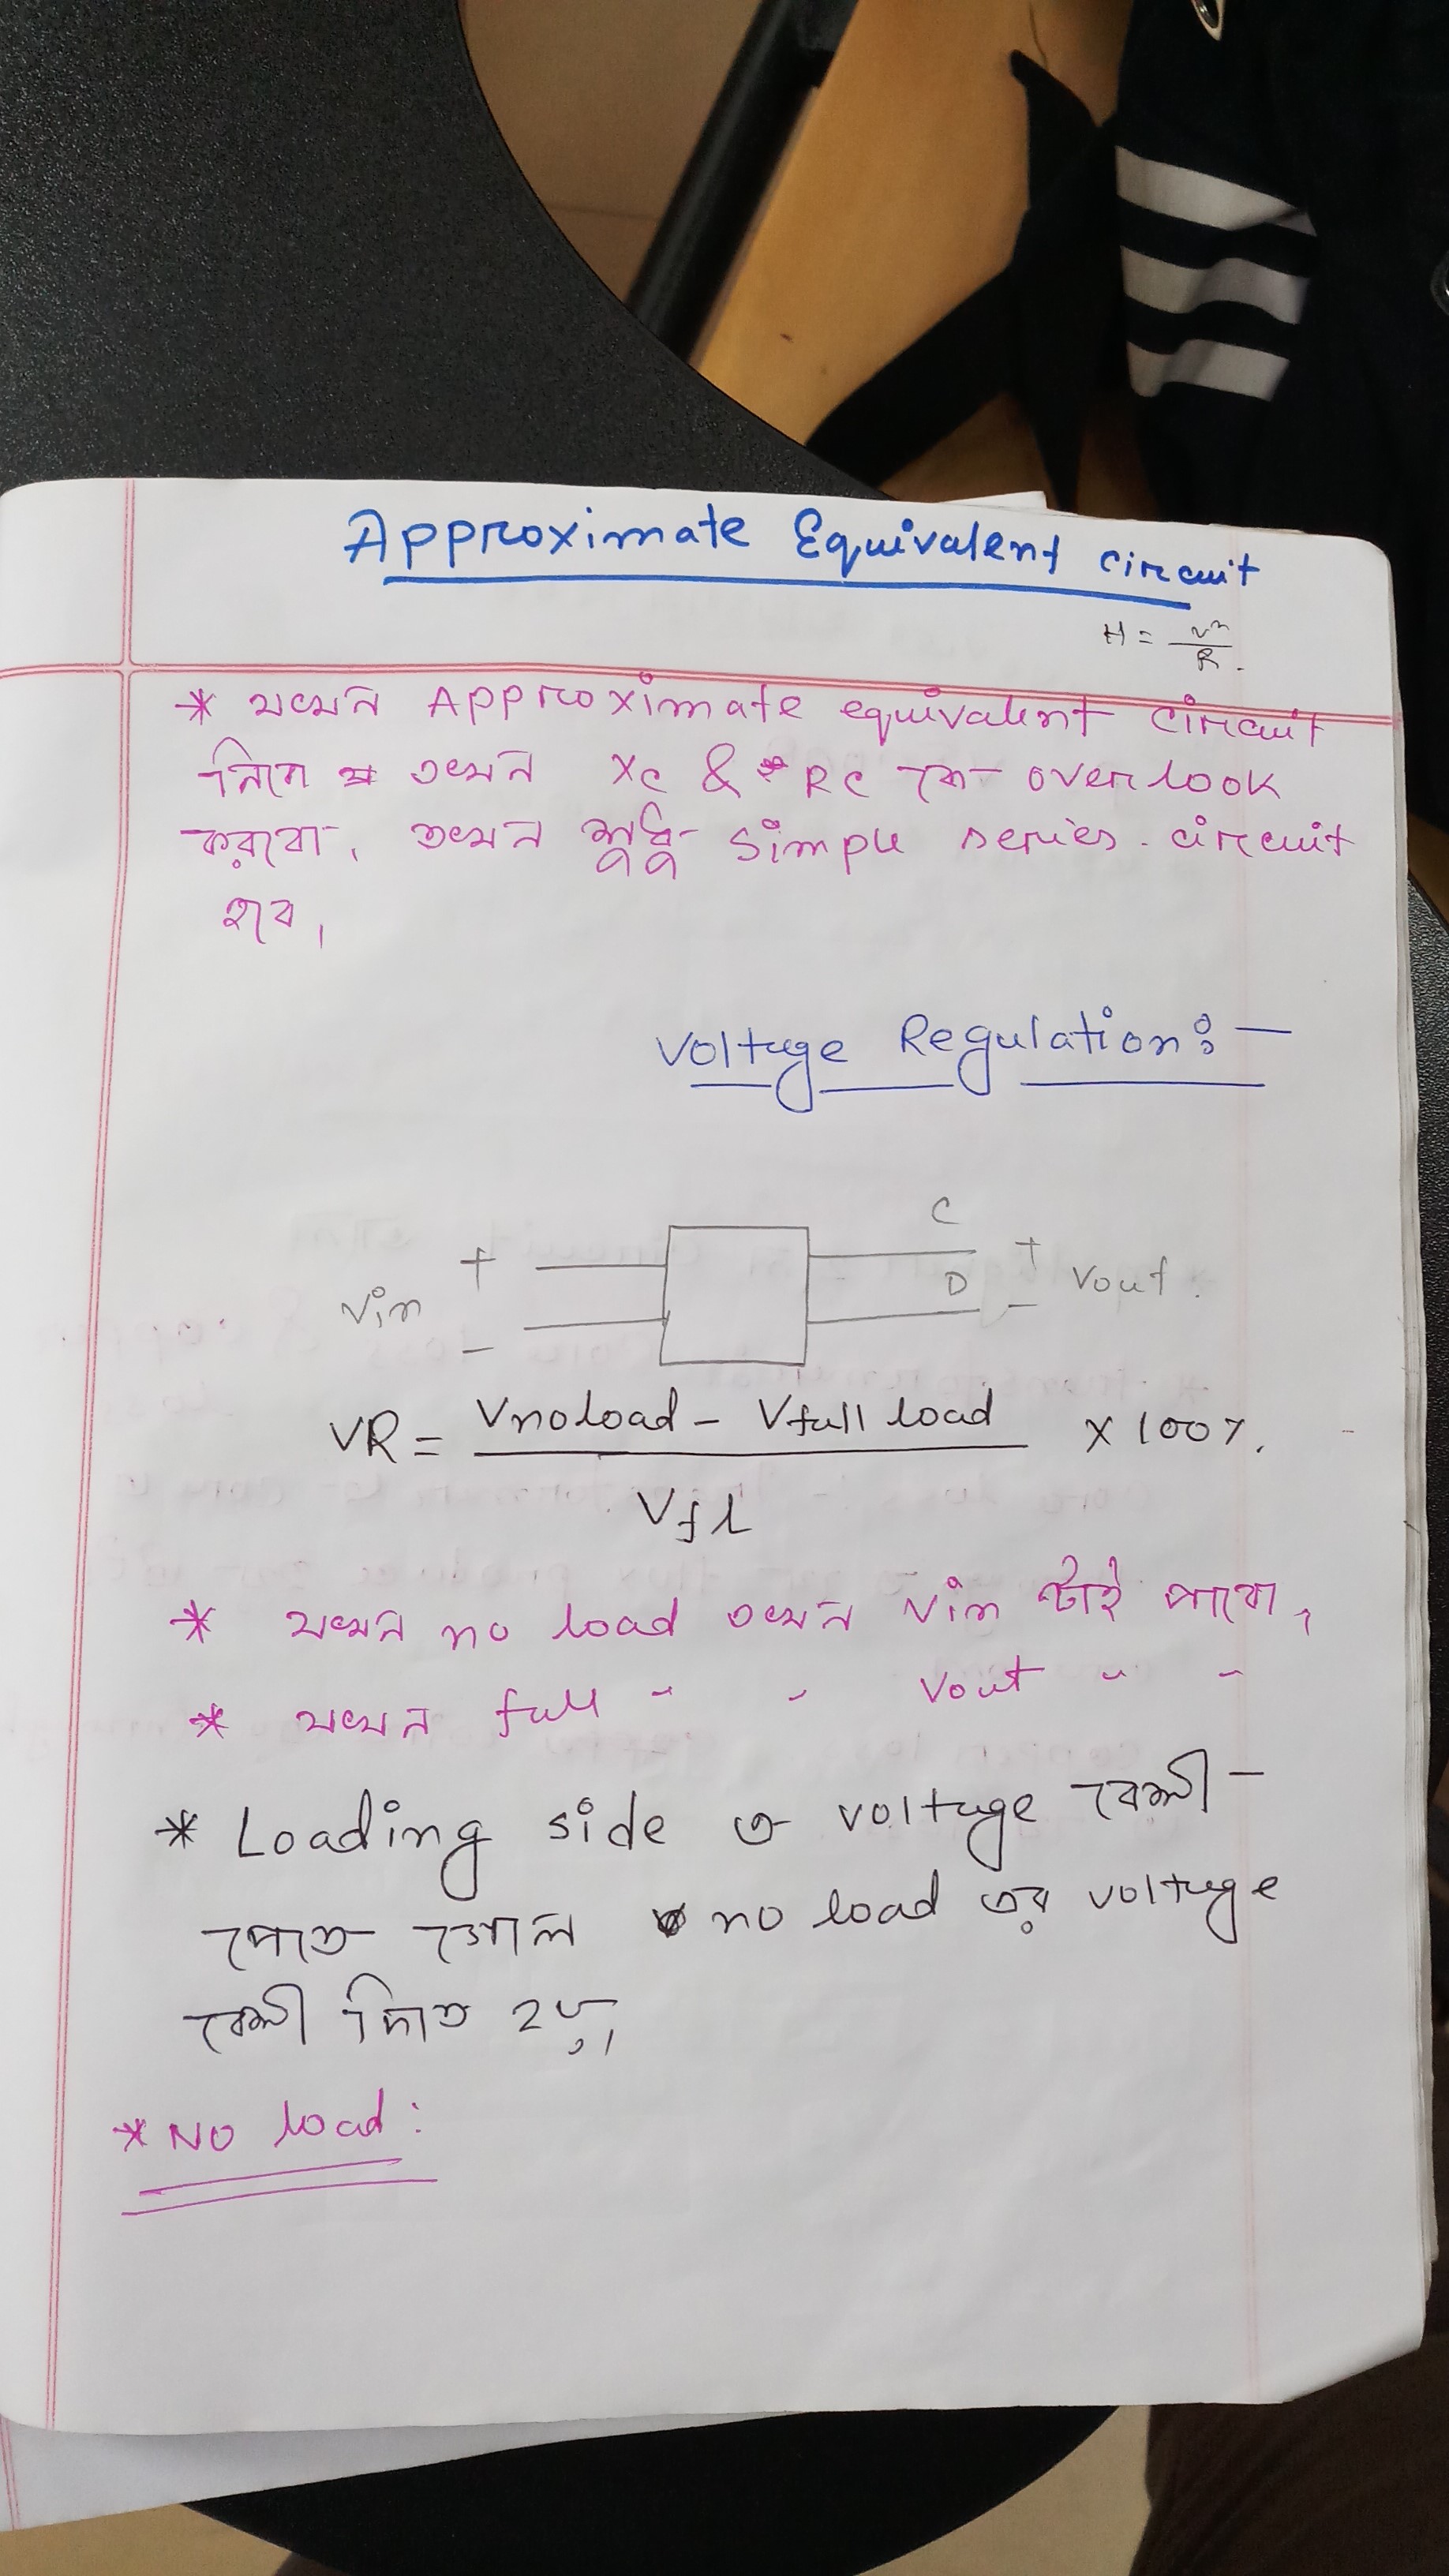 Approximate Equivalent circuit
H = v²/R.
* যখন Approximate equivalent circuit
নিবো তখন Xc & Rc কে overlook
করবো, তখন শুধু simple series circuit
হবে,
Voltage Regulation: —
C
+ + Vout.
Vin D
- -
VR = (Vno load - Vfull load) / Vfl × 100%.
* যখন no load তখন Vin টাই পাবো,
* যখন full " " Vout " "
* Loading side এ voltage বেশী -
পেতে গেলে no load এর voltage
বেশী দিতে হয়,
* NO load: